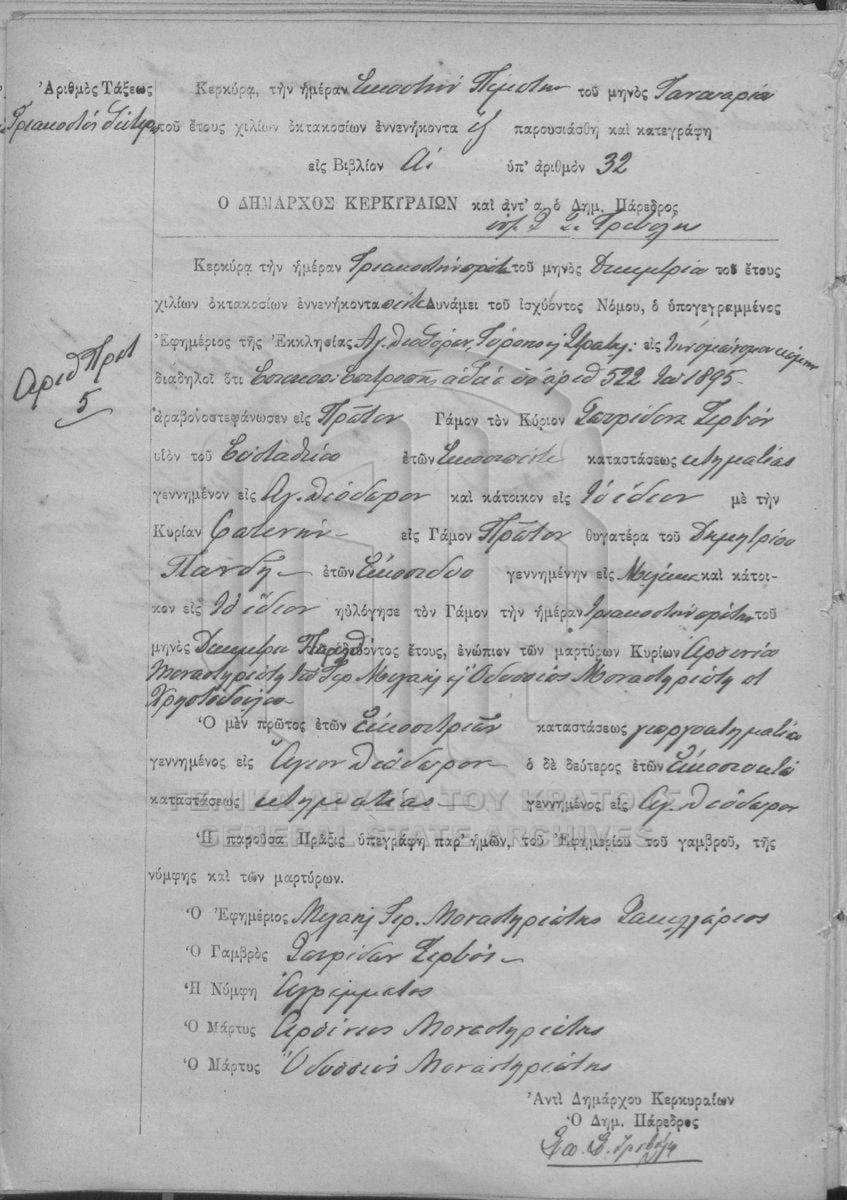 Ἀριθμὸς Τάξεως
Τριακοστόν δεύτερον
Κερκύρᾳ, τὴν ἡμέραν Εικοστήν Πέμπτην τοῦ μηνὸς Ιανουαρίου
τοῦ ἔτους χιλίων ὀκτακοσίων ἐννενήκοντα ἕξ παρουσιάσθη καὶ κατεγράφη
εἰς Βιβλίον Α. ὑπ' ἀριθμὸν 32
Ο ΔΗΜΑΡΧΟΣ ΚΕΡΚΥΡΑΙΩΝ καὶ ἀντ' α. ὁ Δημ. Πάρεδρος
Κερκύρᾳ τὴν ἡμέραν Τριακοστήν πρώτη τοῦ μηνὸς Δεκεμβρίου τοῦ ἔτους
χιλίων ὀκτακοσίων ἐννενήκοντα πέντε Δυνάμει τοῦ ἰσχύοντος Νόμου, ὁ ὑπογεγραμμένος
Ἐφημέριος τῆς Ἐκκλησίας Αγ. Θεοδώρου, εἰς
Αριθ Πρωτ
5
διαδηλοῖ ὅτι αδεία υπ αριθ 522 του 1895
ἀραβονοστεφάνωσεν εἰς Πρῶτον Γάμον τὸν Κύριον Σπυρίδωνα Ζερβόν
υἱὸν τοῦ Ευσταθίου ἐτῶν Εικοσιπέντε καταστάσεως κτηματίας
γεννημένον εἰς Αγ. Θεόδωρον καὶ κάτοικον εἰς Το ίδιον μὲ τὴν
Κυρίαν Φωτεινήν εἰς Γάμον Πρῶτον θυγατέρα τοῦ Δημητρίου
Πάνδη ἐτῶν Εικοσιδύο γεννημένην εἰς καὶ κάτοι-
κον εἰς Το ίδιον ηὐλόγησε τὸν Γάμον τὴν ἡμέραν τριακοστήν πρώτην τοῦ
μηνὸς Δεκεμβρίου Παρελθόντος ἔτους, ἐνώπιον τῶν μαρτύρων Κυρίων Αρσενίου
Μοναστηριώτη του Γερ. Μιχαήλ ή Οδυσσέως Μοναστηριώτη
Χρηστοδούλου
Ὁ μὲν πρῶτος ἐτῶν Εικοσιτριῶν καταστάσεως γεωργοκτηματία
γεννημένος εἰς Ἅγιον Θεόδωρον ὁ δὲ δεύτερος ἐτῶν Εικοσιοκτώ
καταστάσεως κτηματίας γεννημένος εἰς Αγ. Θεόδωρον
ΓΕΝΙΚΑ ΑΡΧΕΙΑ ΤΟΥ ΚΡΑΤΟΥΣ
GENERAL STATE ARCHIVES
Ἡ παροῦσα Πρᾶξις ὑπεγράφη παρ' ἡμῶν, τοῦ Ἐφημερίου τοῦ γαμβροῦ, τῆς
νύμφης καὶ τῶν μαρτύρων.
Ὁ Ἐφημέριος Μιχαήλ Γερ. Μοναστηριώτης Σακελλάριος
Ὁ Γαμβρὸς Σπυρίδων Ζερβός
Ἡ Νύμφη Αγράμματος
Ὁ Μάρτυς Αρσένιος Μοναστηριώτης
Ὁ Μάρτυς Ὀδυσσεύς Μοναστηριώτης
Ἀντὶ Δημάρχου Κερκυραίων
Ὁ Δημ. Πάρεδρος